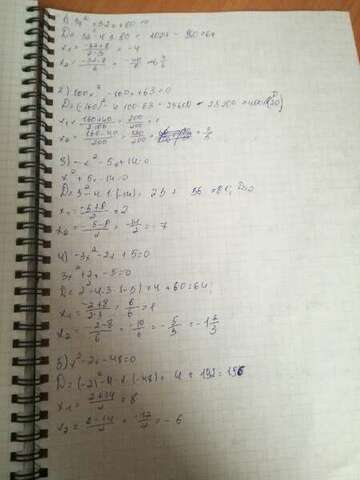 1) 3x² + 32x + 80 = 0
D = 32² - 4·3·80 = 1024 - 960 = 64
x₁ = (-32+8)/(2·3) = -4
x₂ = (-32-8)/6 = -40/6
2) 100x² - 160x + 63 = 0
D = (-160)² - 4·100·63 = 25600 - 25200 = 400 (20)
x₁ = (160+40)/(2·100) = 200/200 = 1
x₂ = (160-40)/200 = 120/200 = 3/5
3) -x² - 5x + 14 = 0
x² + 5x - 14 = 0
D = 5² - 4·1·(-14) = 25 + 56 = 81, D>0
x₁ = (-5+9)/2 = 2
x₂ = (-5-9)/2 = -14/2 = -7
4) -3x² - 2x + 5 = 0
3x² + 2x - 5 = 0
D = 2² - 4·3·(-5) = 4 + 60 = 64
x₁ = (-2+8)/(2·3) = 6/6 = 1
x₂ = (-2-8)/6 = -10/6 = -5/3 = -1 2/3
5) x² - 2x - 48 = 0
D = (-2)² - 4·1·(-48) = 4 + 192 = 196
x₁ = (2+14)/2 = 8
x₂ = (2-14)/2 = -12/2 = -6